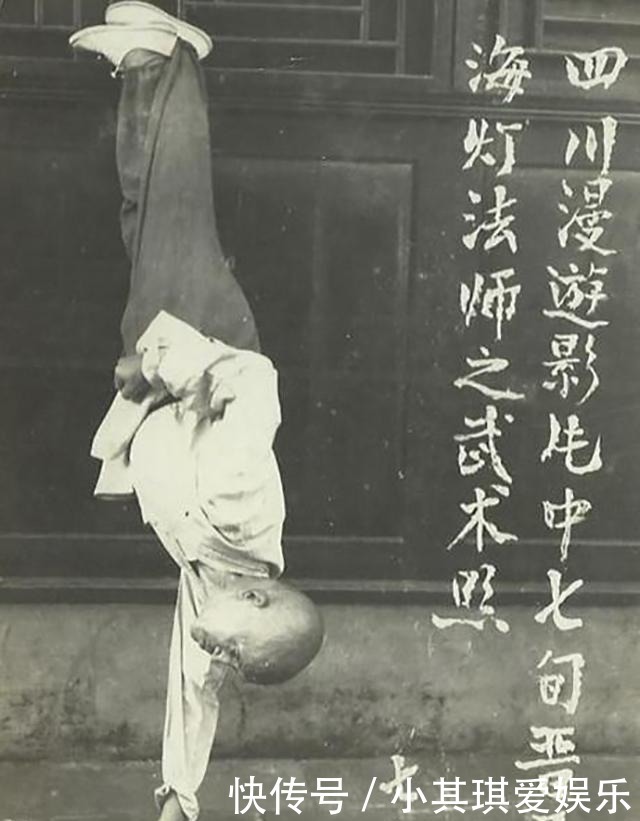 四川漫遊影片中七旬
海灯法师之武术照
七
快传号/小其琪爱娱乐